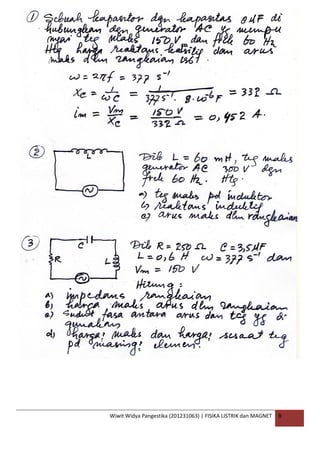 ① Sebuah kapasitor dgn kapasitas 8 μF di
hubungkan dgn generator AC yg mempu
nyai teg maks 150 V dan frek 60 Hz
Htg harga reaktans kasitif dan arus
maks dlm rangkaian tsb!
ω = 2πf = 377 s⁻¹
Xc = 1/ωC = 1/377 s⁻¹. 8.10⁻⁶ F = 332 Ω
im = Vm/Xc = 150 V/332 Ω = 0,452 A.
② Dik L = 60 mH, teg maks
generator AC 300 V dgn
frek 60 Hz. Htg.
a) teg maks pd induktor
b) reaktans induktif
c) arus maks dlm rangkaian
③ Dik R = 250 Ω C = 3,5 μF
L = 0,6 H ω = 377 s⁻¹ dan
Vm = 150 V
Hitung :
C
R
L
a) impedans rangkaian
b) harga maks arus dlm rangkaian
c) sudut fasa antara arus dan teg yg di-
gunakan
d) harga² maks dan harga² sesaat teg
pd masing² elemen.
Wiwit Widya Pangestika (201231063) | FISIKA LISTRIK dan MAGNET